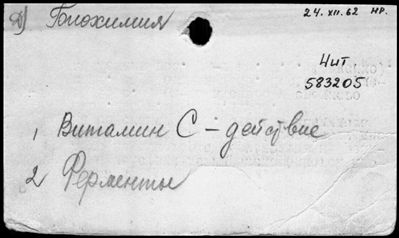 Д) Биохимия
24.XII.62 НР.
Чит
583205
1 Витамин С – действие
2 Ферменты